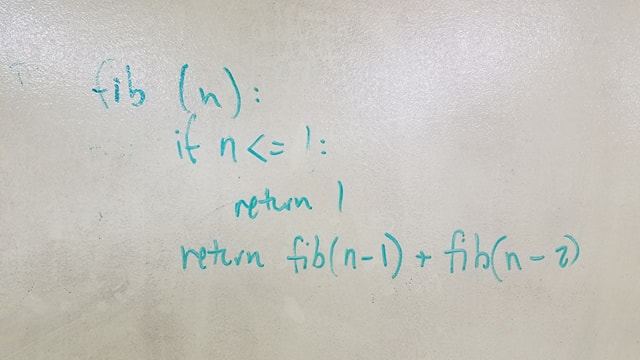 fib (n):
if n <= 1:
return 1
return fib(n-1) + fib(n-2)